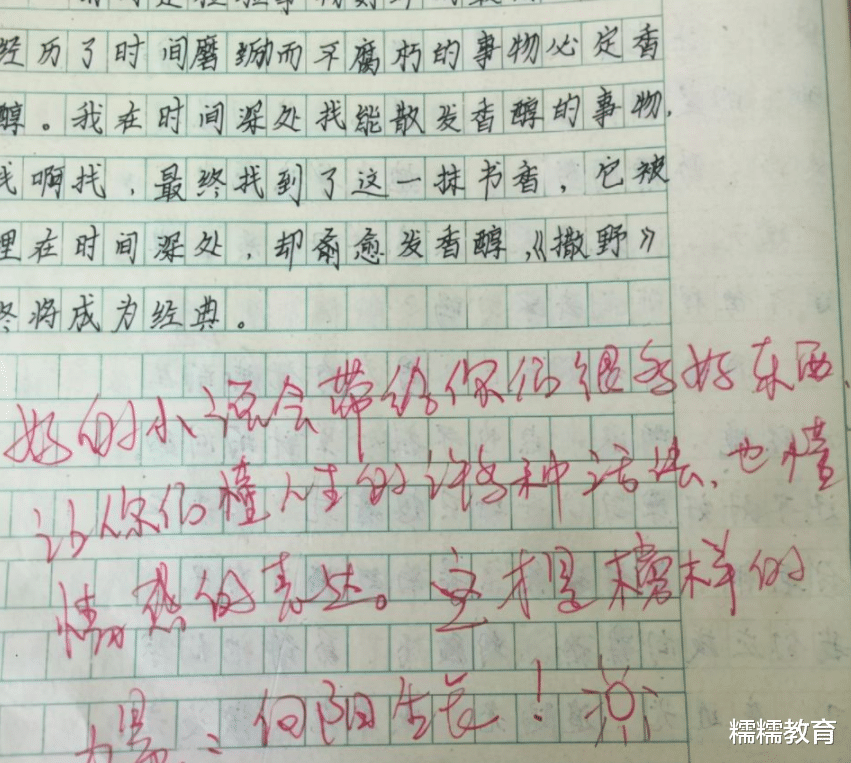 经历了时间磨励而不腐朽的事物必定香
醇。我在时间深处找能散发香醇的事物,
找啊找,最终找到了这一抹书香,它被
埋在时间深处,却愈愈发香醇,《撒野》
终将成为经典。
好的小说会带给你们很多好东西,
让你们懂人生的许多种活法,也懂
情感的表达。这才是榜样的
力量:向阳生长!
糯糯教育